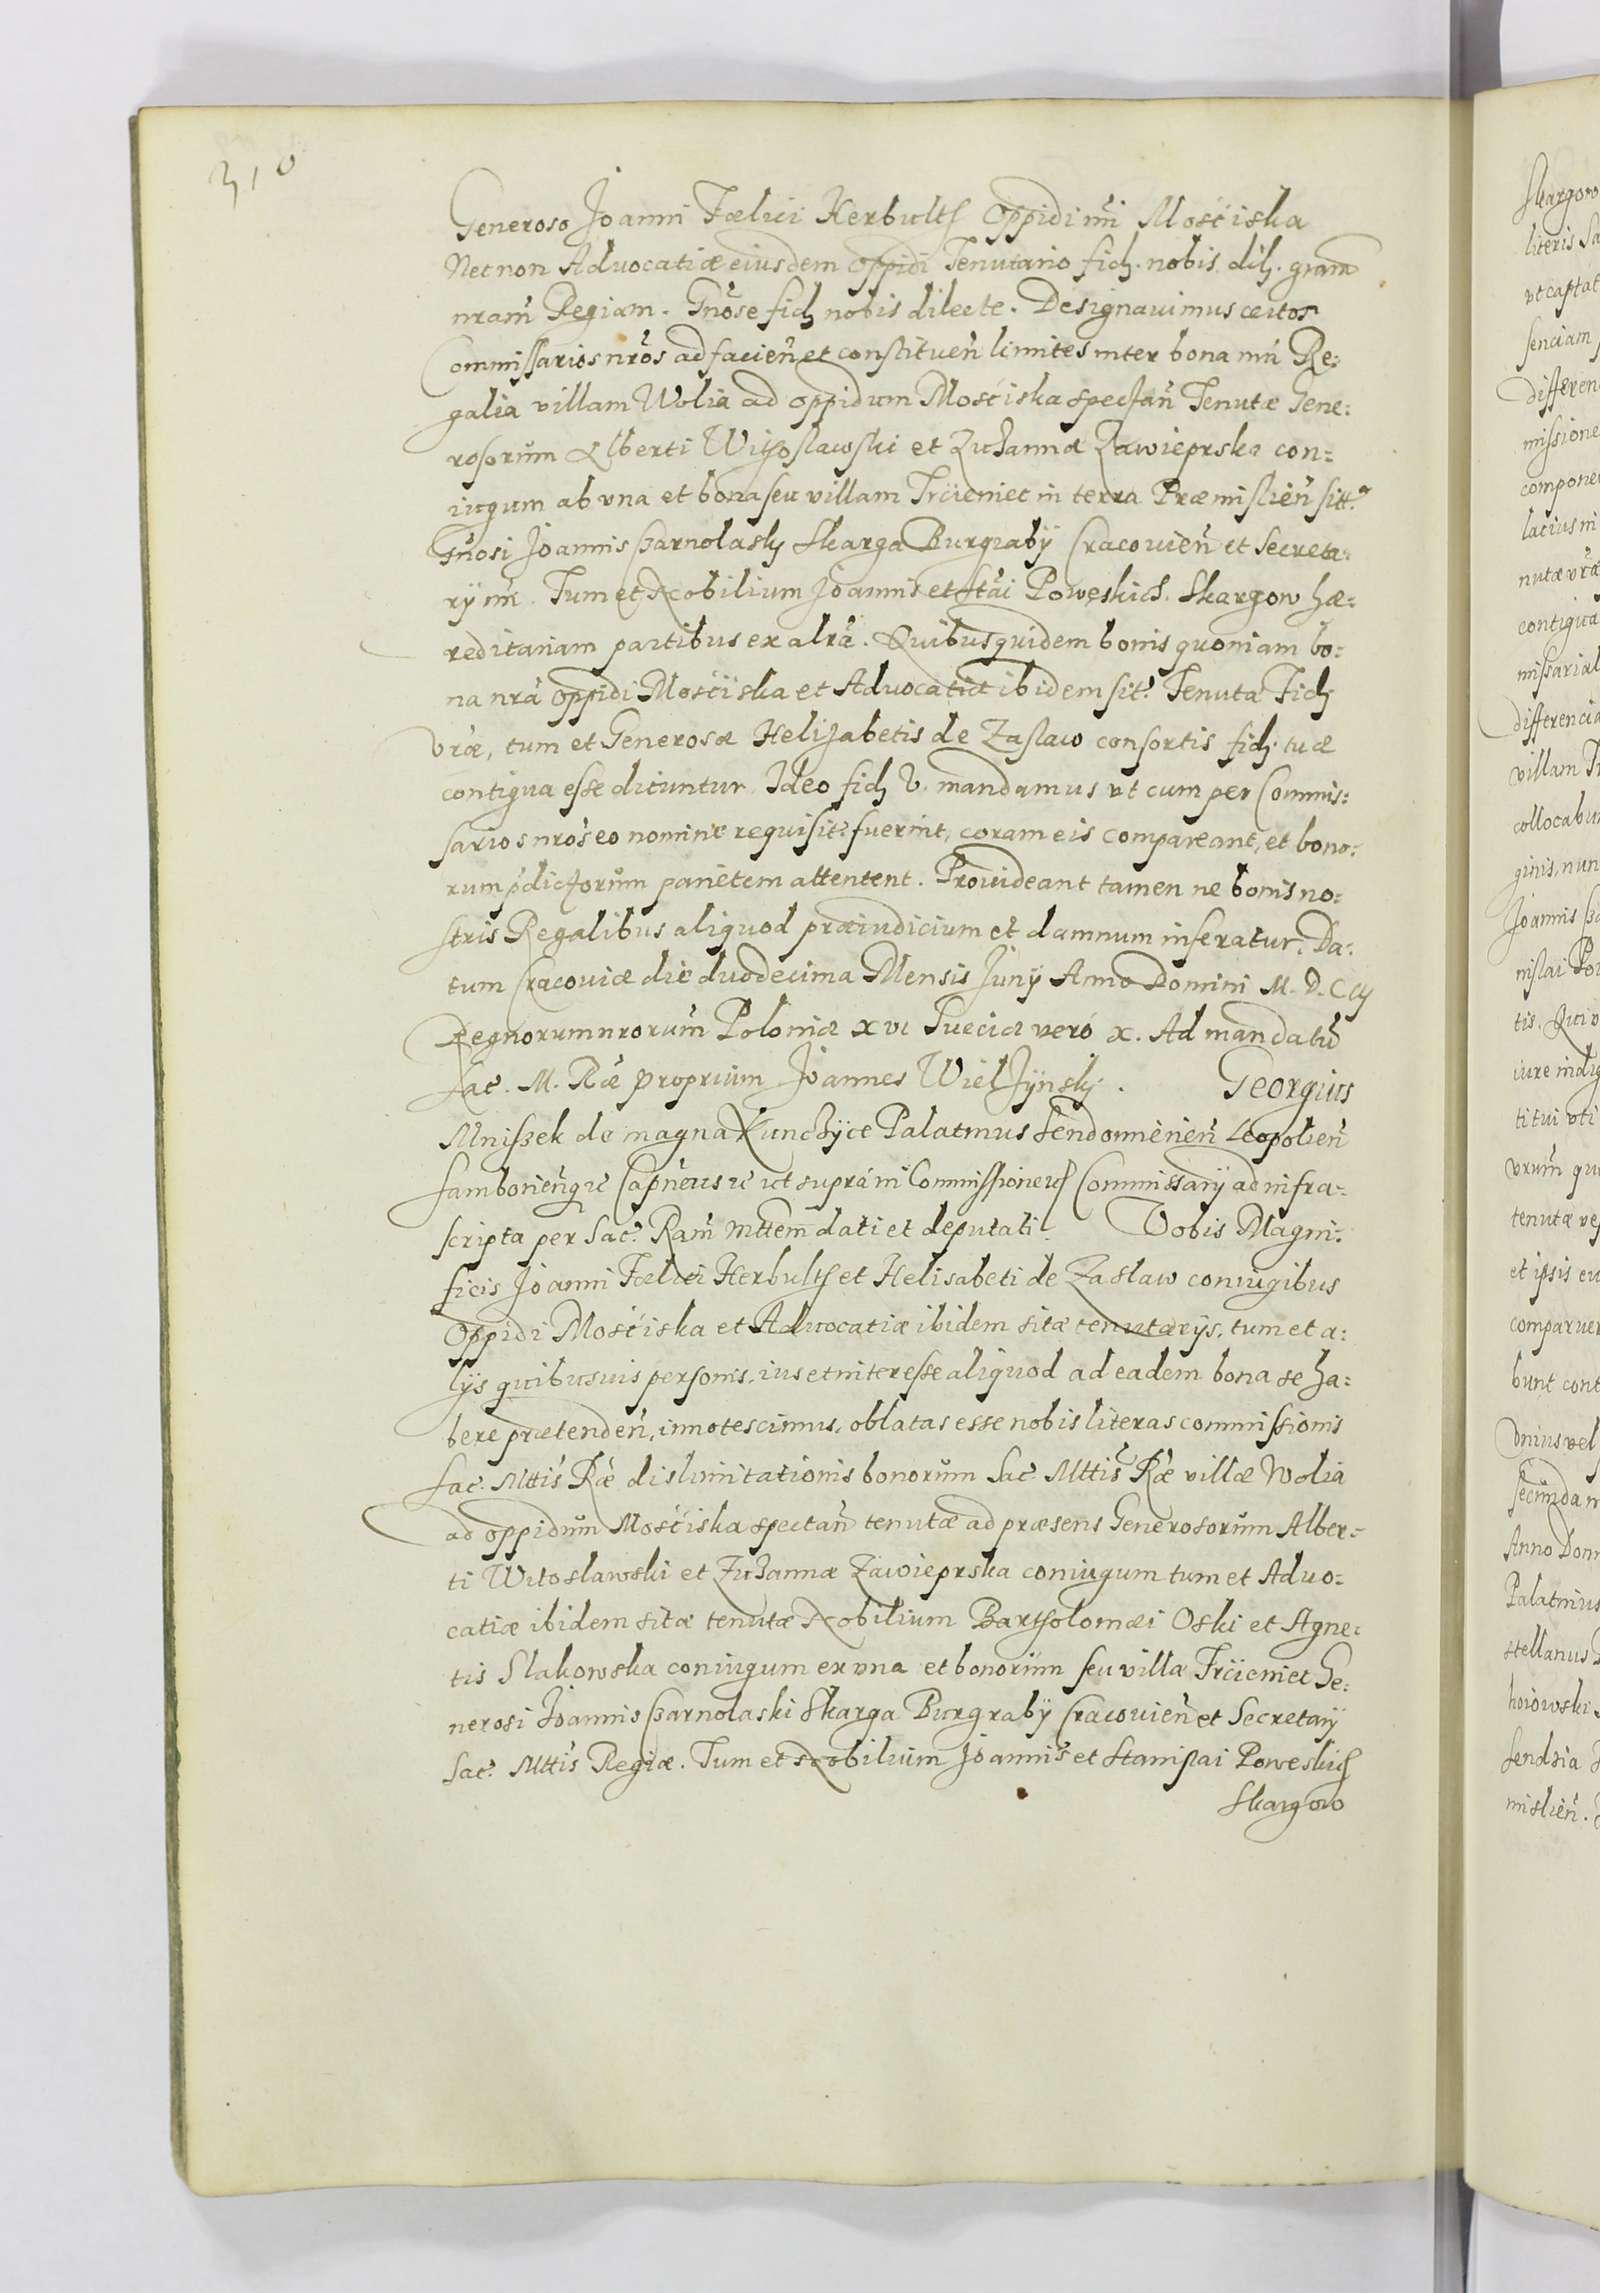 310
Generoso Joanni Fœlici Herbulth Oppidi nri Mościska
Necnon Advocatiæ eiusdem Oppidi Tenutario fid. nobis dil. gram
nram Regiam. Gnose fid. nobis dilecte. Designauimus certos
Commissarios nros ad facien et constituen limites inter bona nra Re:
galia villam Wolia ad oppidum Mościska spectan Tenutæ Gene:
rosorum Alberti Witoslawski et Zuzannæ Zawieprska con:
iugum ab vna et bona seu villam Trcieniec in terra Præmislien sitt.
Gnosi Joannis Czarnolasky Skarga Burgraby Cracouien et Secreta:
ry nri. Tum et Nobilium Joannis et Stai Poweskich Skargow hæ:
reditariam partibus ex altra. Quibus quidem bonis quoniam bo:
na nra oppidi Mościska et Advocatiæ ibidem sit. Tenuta Fid.
Vræ, tum et Generosæ Helizabetis de Zaslaw consortis fid. tuæ
contigua esse dicuntur. Ideo fid. V. mandamus vt cum per Commis:
sarios nros eo nomine requisit. fuerint, coram eis compareant, et bono:
rum pdictorum parietem attentent. Prouideant tamen ne bonis no:
stris Regalibus aliquod præiudicium et damnum inferatur. Da:
tum Cracouiæ die duodecima Mensis Juny Anno Domini M. D. C iij
Regnorum nrorum Poloniæ xvi Sueciæ veró x. Ad mandatu
Sac. M. Ræ proprium Joannes Wielzynsky. Georgius
Mniszek de magna Kunczyce Palatinus Sendomirien Leopolien
Samborienque Capneus &c ut supra in Commissione &c Commissarij ad infra:
scripta per Sac. Ram Mttem dati et deputati. Vobis Magni:
ficis Joanni Fœlici Herbulth et Helisabeti de Zaslaw coniugibus
Oppidi Mościska et Advocatiæ ibidem sitæ tenutarijs, tum et a:
lijs quibusuis personis, ius et interesse aliquod ad eadem bona se ha:
bere prætenden, innotescimus, oblatas esse nobis literas commissionis
Sac. Mttis Ræ dislimitationis bonorum Sac Mttis Ræ villæ Wolia
ad oppidum Mościska spectan tenutæ ad præsens Generosorum Alber:
ti Witoslawski et Zuzannæ Zawieprska coniugum tum et Advo:
catiæ ibidem sitæ tenutæ Nobilium Bartholomæi Oski et Agne:
tis Slakowska coniugum ex vna et bonorum seu villæ Trcieniec Ge:
nerosi Joannis Czarnolaski Skarga Burgraby Cracouien et Secretarij
Sac. Mttis Regiæ. Tum et Nobilium Joannis et Stanislai Poweskich
Skargow
Skargow
literis Sa
vt captat
senciam
differen
missione
compone
latius in
nutæ vræ
contigua
missarial
differencia
villam Tr
collocabu
ginis, nun
Joannis Cza
nislai Pow
tis. Qui v
iure indig
titui vti
vrum qu
tenutæ ves
et ipsis eu
comparuer
bunt cont
Vnius vel
Secunda m
Anno Dom
Palatinus
stellanus
hoiowski
Sendzia
mislien.